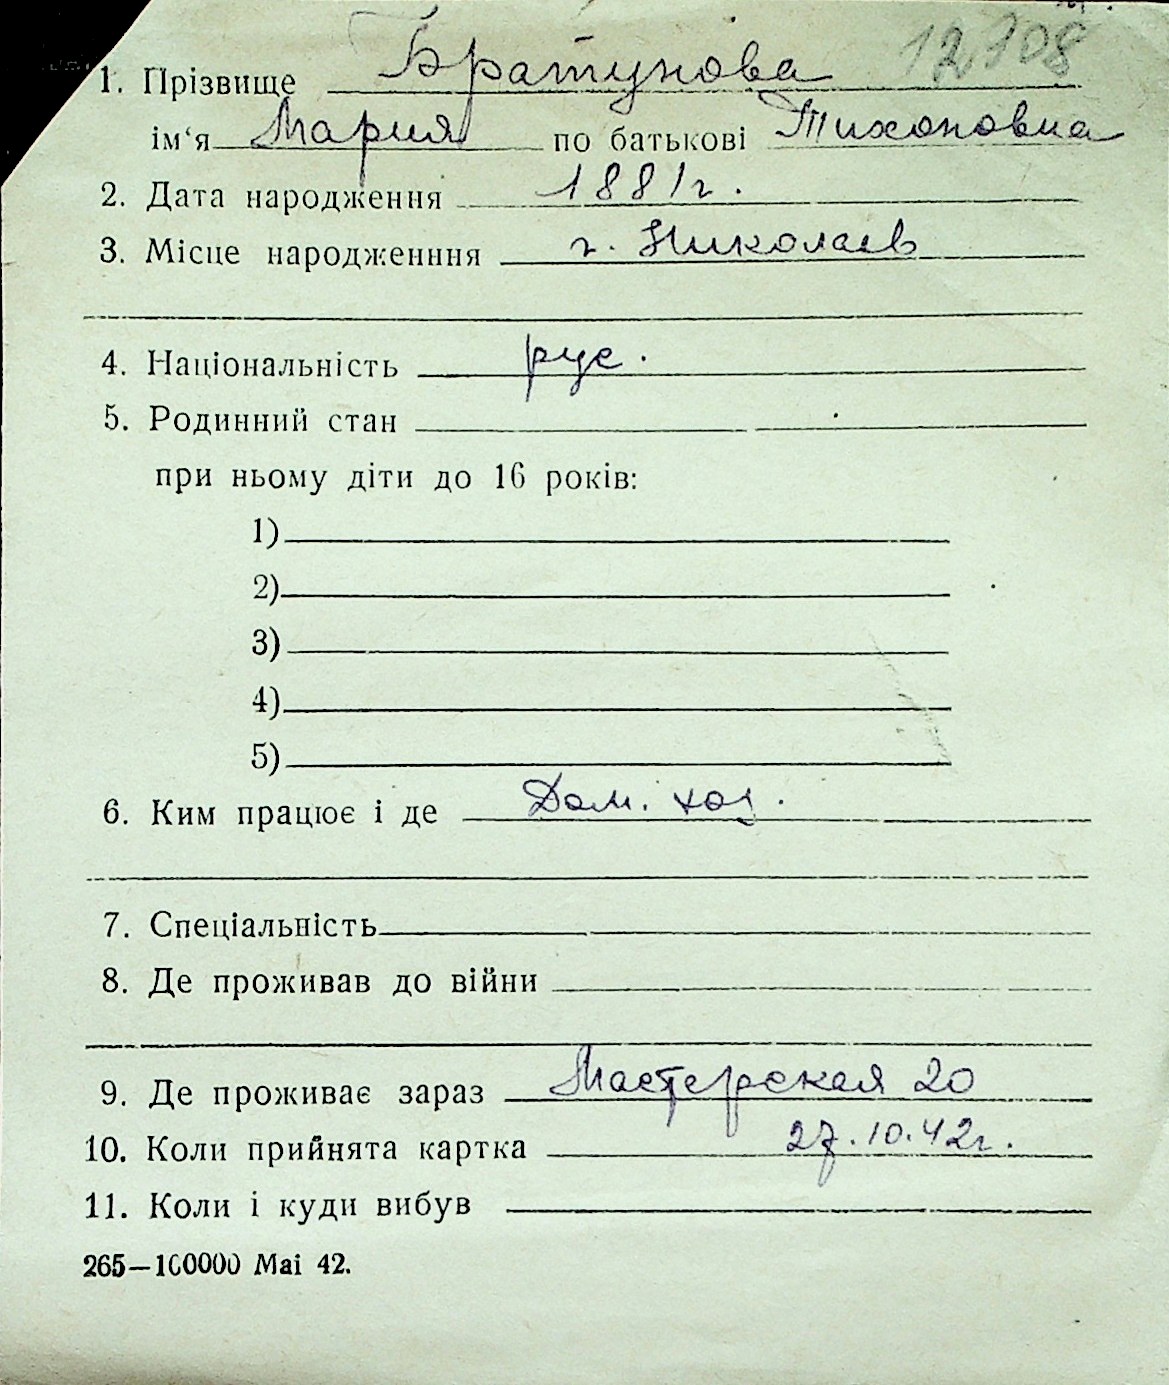 12108
1. Прізвище Братунова
ім‘я Мария по батькові Тихоновна
2. Дата народження 1881г.
3. Місце народженння г. Николаев
4. Національність рус.
5. Родинний стан
при ньому діти до 16 років:
1)
2)
3)
4)
5)
6. Ким працює і де Дом. хоз.
7. Спеціальність
8. Де проживав до війни
9. Де проживає зараз Мастерская 20
10. Коли прийнята картка 27.10.42г.
11. Коли і куди вибув
265—100000 Mai 42.